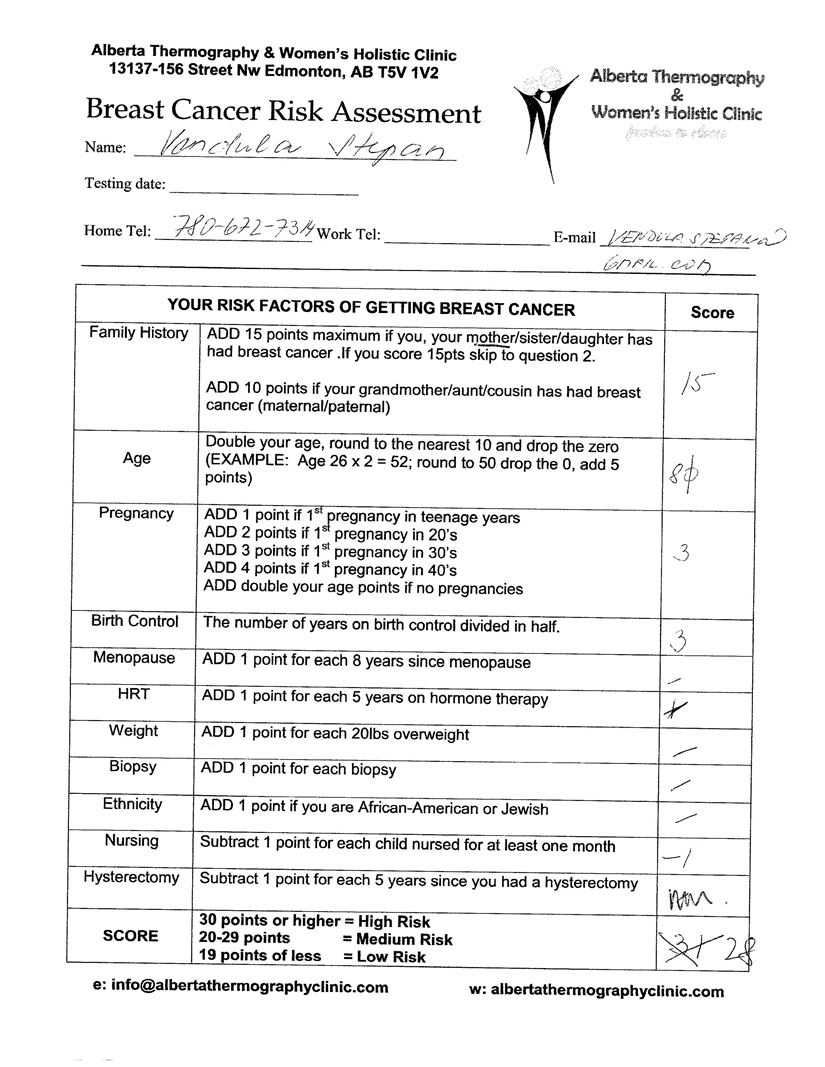 Alberta Thermography & Women's Holistic Clinic
13137-156 Street Nw Edmonton, AB T5V 1V2
Alberta Thermography
&
Women's Holistic Clinic
Breast Cancer Risk Assessment
Name: Vendula Stepan
Testing date:
Home Tel: 780-672-7314 Work Tel: E-mail VENDULA.STEPAN@
GMAIL.COM
YOUR RISK FACTORS OF GETTING BREAST CANCER Score
Family History ADD 15 points maximum if you, your mother/sister/daughter has
had breast cancer .If you score 15pts skip to question 2.
15
ADD 10 points if your grandmother/aunt/cousin has had breast
cancer (maternal/paternal)
Double your age, round to the nearest 10 and drop the zero
Age (EXAMPLE: Age 26 x 2 = 52; round to 50 drop the 0, add 5 80
points)
Pregnancy ADD 1 point if 1st pregnancy in teenage years
ADD 2 points if 1st pregnancy in 20's
ADD 3 points if 1st pregnancy in 30's 3
ADD 4 points if 1st pregnancy in 40's
ADD double your age points if no pregnancies
Birth Control The number of years on birth control divided in half. 3
Menopause ADD 1 point for each 8 years since menopause –
HRT ADD 1 point for each 5 years on hormone therapy
Weight ADD 1 point for each 20lbs overweight –
Biopsy ADD 1 point for each biopsy –
Ethnicity ADD 1 point if you are African-American or Jewish –
Nursing Subtract 1 point for each child nursed for at least one month -1
Hysterectomy Subtract 1 point for each 5 years since you had a hysterectomy
30 points or higher = High Risk
SCORE 20-29 points = Medium Risk 28
19 points of less = Low Risk
e: info@albertathermographyclinic.com w: albertathermographyclinic.com